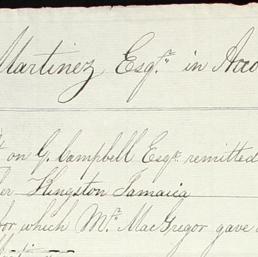 Martinez Esqr. in
on G. Campbell Esqr. remitted
Kingston Jamaica
for which Mr. MacGregor gave